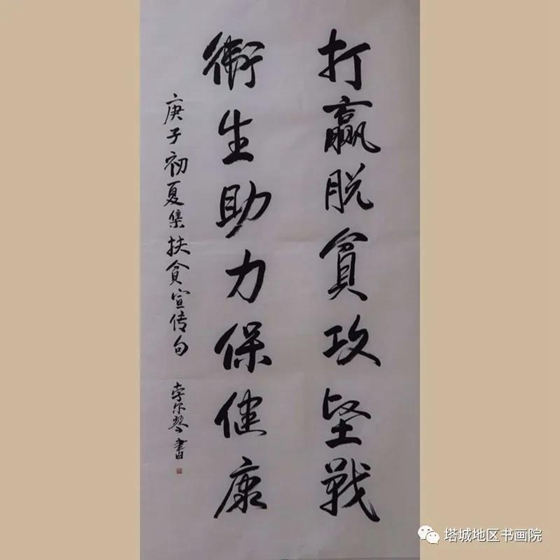 打赢脱贫攻坚战
衛生助力保健康
庚子初夏集扶贫宣传句
书
塔城地区书画院